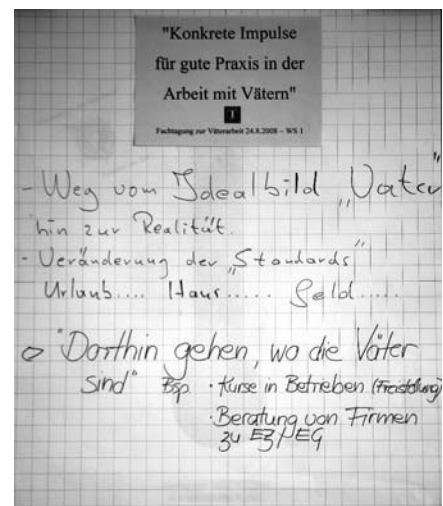 "Konkrete Impulse
für gute Praxis in der
Arbeit mit Vätern"
1
Fachtagung zur Väterarbeit 24.8.2008 – WS 1
- Weg vom Idealbild „Vater"
hin zur Realität.
- Veränderung der „Standards"
Urlaub.... Haus..... Geld.....
"Dorthin gehen, wo die Väter
sind" Bsp. · Kurse in Betrieben (Freistellung)
· Beratung von Firmen
zu EZ / EG